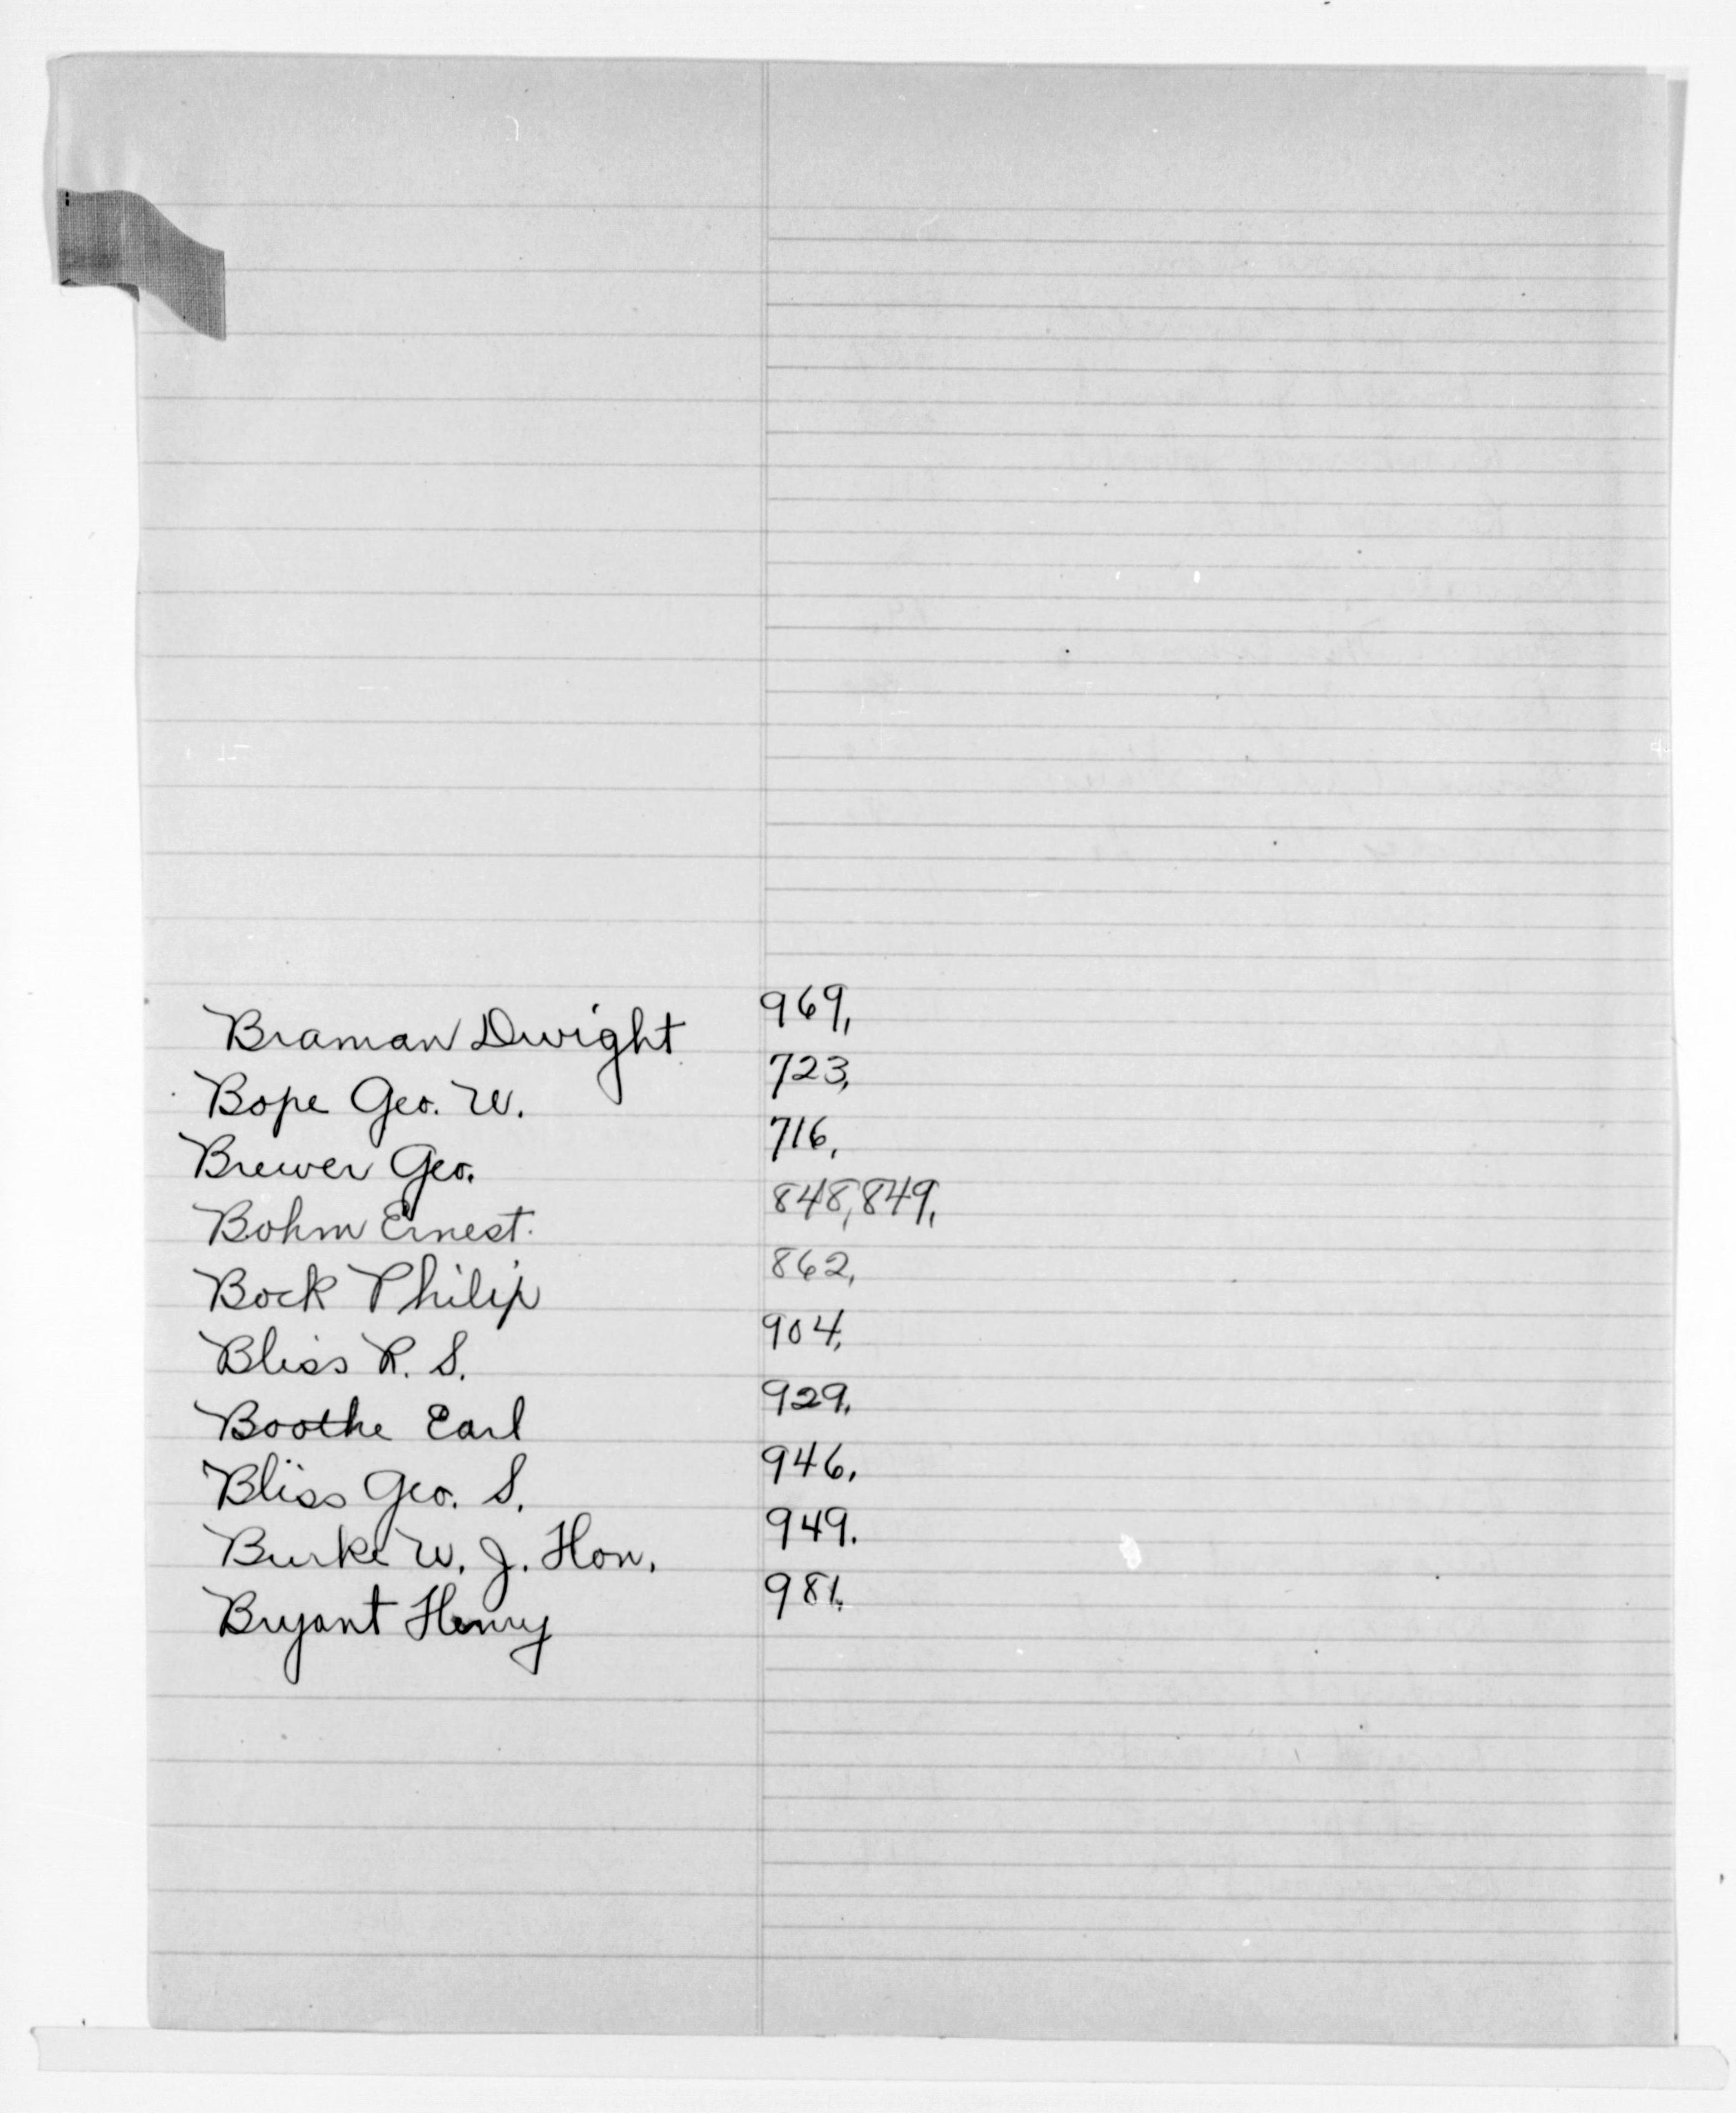 Braman Dwight 969,
Bope Geo. W. 723,
Brewer Geo. 716,
Bohm Ernest. 848, 849,
Bock Philip 862,
Bliss R. S. 904,
Boothe Earl 929.
Bliss Geo. S. 946.
Burke W. J. Hon. 949.
Bryant Henry 981.